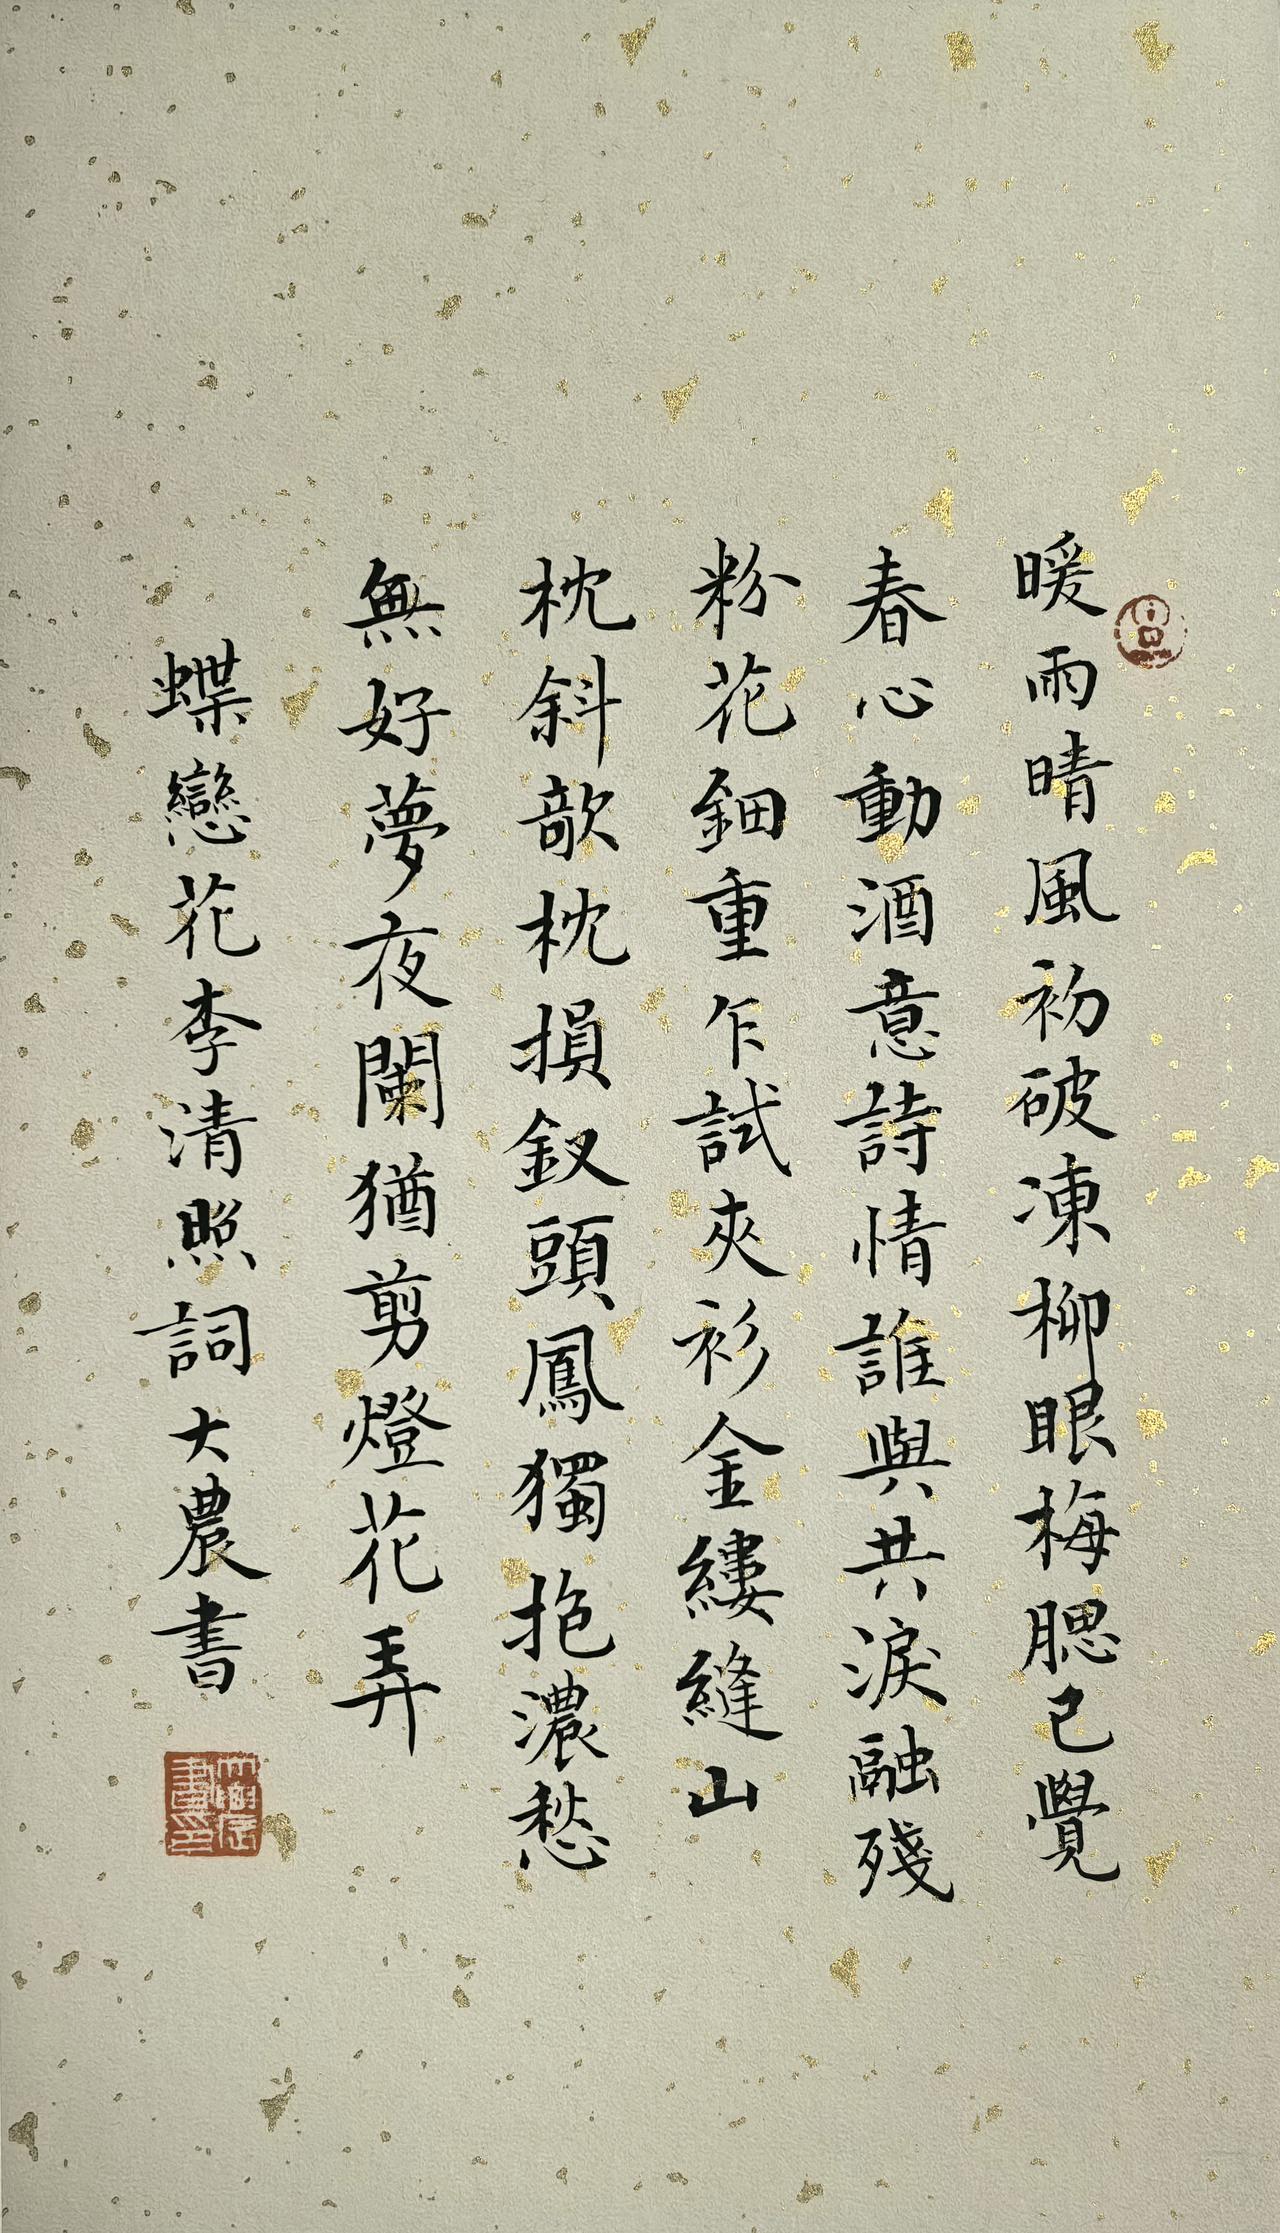 暖雨晴風初破凍柳眼梅腮已覺
春心動酒意詩情誰與共淚融殘
粉花鈿重乍試夾衫金縷縫山
枕斜歆枕損釵頭鳳獨抱濃愁
無好夢夜闌猶剪燈花弄
蝶戀花李清照詞大農書